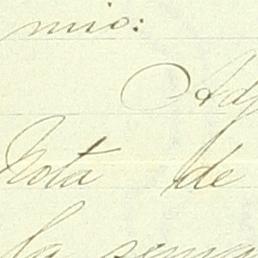 mio:
Adj
Nota de
la sema